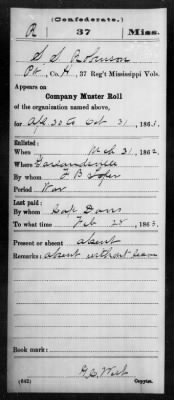 (Confederate.)
R 37 Miss.
S S Robinson
Pvt, Co. H, 37 Reg't Mississippi Vols.
Appears on
Company Muster Roll
of the organization named above,
for Apl 30 to Oct 31, 1863.
Enlisted:
When Mch 31, 1862
Where Garlandville
By whom J B Loper
Period War
Last paid:
By whom Capt Davis
To what time Feb 28, 1863.
Present or absent absent
Remarks: absent without leave
Book mark:
(642) Copyist.